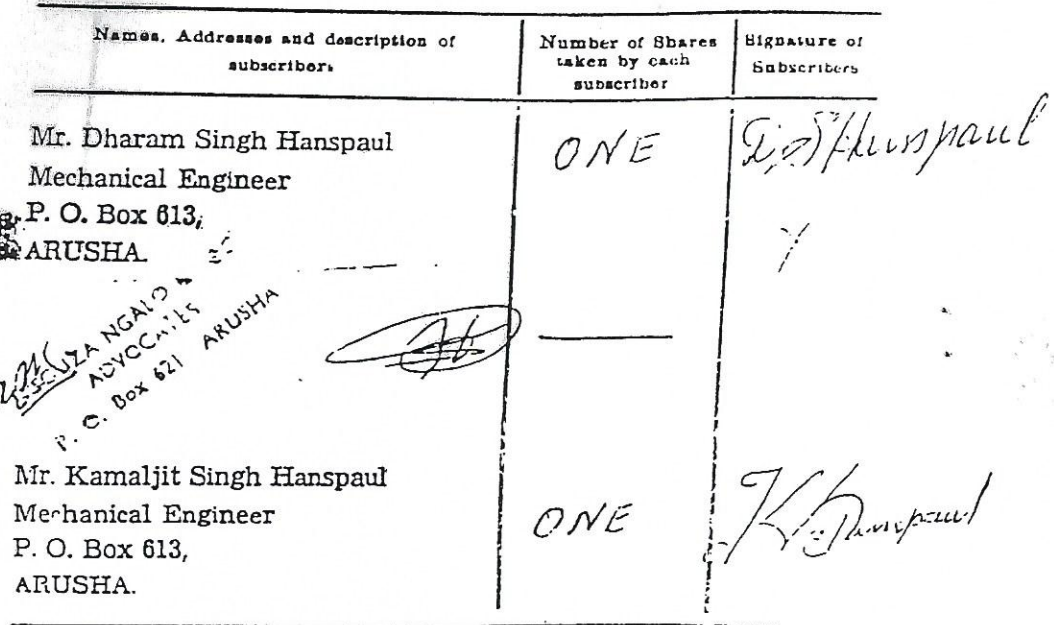 Names, Addresses and description of
subscribers
Number of Shares
taken by each
subscriber
Signature of
Subscribers
Mr. Dharam Singh Hanspaul
Mechanical Engineer
P. O. Box 613,
ARUSHA.
ONE
Hanspaul
NGALO
ADVOCATES
P. O. Box 621 ARUSHA
Mr. Kamaljit Singh Hanspaul
Mechanical Engineer
P. O. Box 613,
ARUSHA.
ONE
K. S. Hanspaul